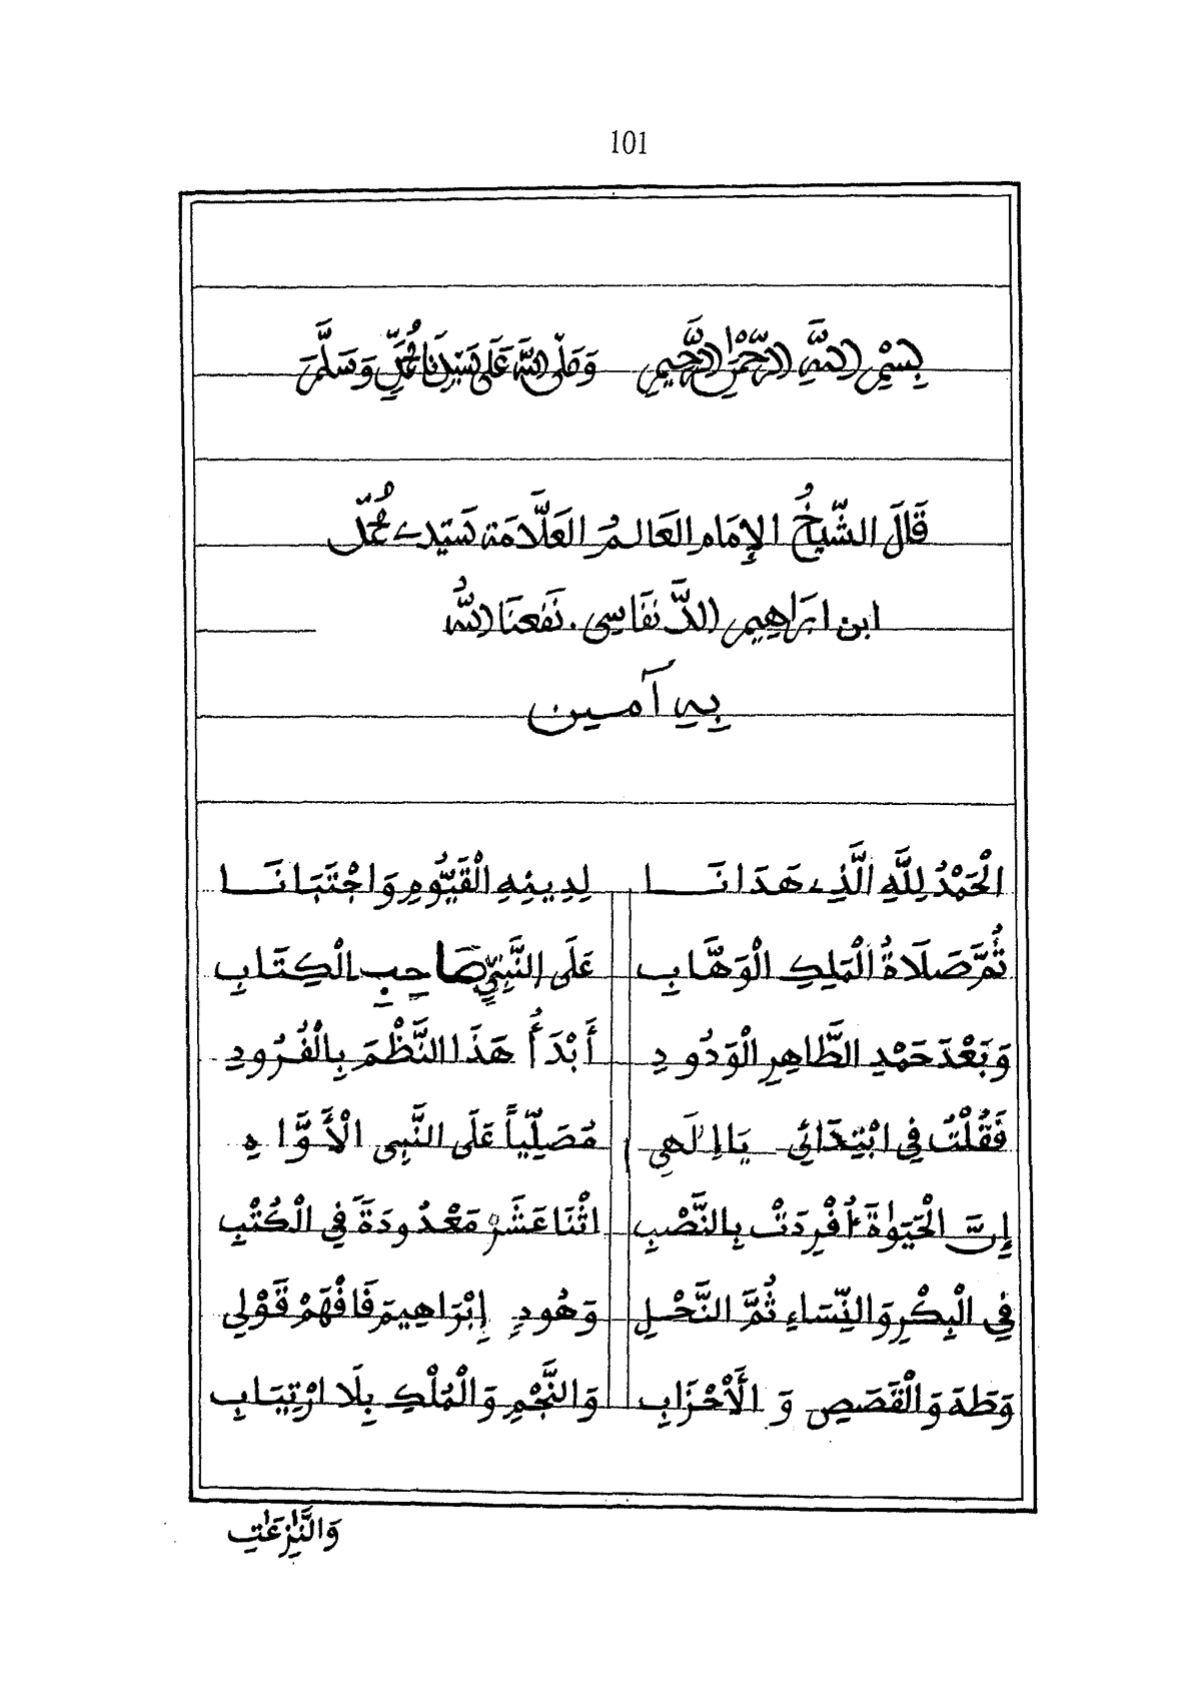 101
بِسْمِ اللَّهِ الرَّحْمَٰنِ الرَّحِيمِ وَصَلَّى اللَّهُ عَلَى سَيِّدِنَا مُحَمَّدٍ وَسَلَّمَ
قَالَ الشَّيْخُ الإِمَامِ العَالِمُ العَلَّامَة سَيِّدِي مُحَمَّدُ
ابن ابْرَاهِيمِ الدَّنفَاسِي. نَفَعَنَا اللَّهُ
بِهِ آمين
الْحَمْدُ لِلَّهِ الَّذِي هَدَانَا لِدِينِهِ الْقَيُّومِ وَاجْتَبَانَا
ثُمَّ صَلَاةُ الْمَلِكِ الْوَهَّابِ عَلَى النَّبِيِّ صَاحِبِ الْكِتَابِ
وَبَعْدَ حَمْدِ الطَّاهِرِ الْوَدُودِ أَبْدَأُ هَذَا النَّظْمَ بِالْفُرُودِ
فَقُلْتُ فِي ابْتِدَائِي يَا إِلَٰهِي مُصَلِّياً عَلَى النَّبِي الْأَوَّاهِ
إِنَّ الْحَيَوٰةَ أُفْرِدَتْ بِالنَّصْبِ اثْنَا عَشَرْ مَعْدُودَةً فِي الْكُتْبِ
فِي الْبِكْرِ وَالنِّسَاءِ ثُمَّ النَّحْلِ وَهُودٍ إِبْرَاهِيمَ فَافْهَمْ قَوْلِي
وَطَهَ وَالْقَصَصِ وَ الْأَحْزَابِ وَالنَّجْمِ وَالْمُلْكِ بِلَا ارْتِيَابِ
وَالنَّٰزِعَٰتِ